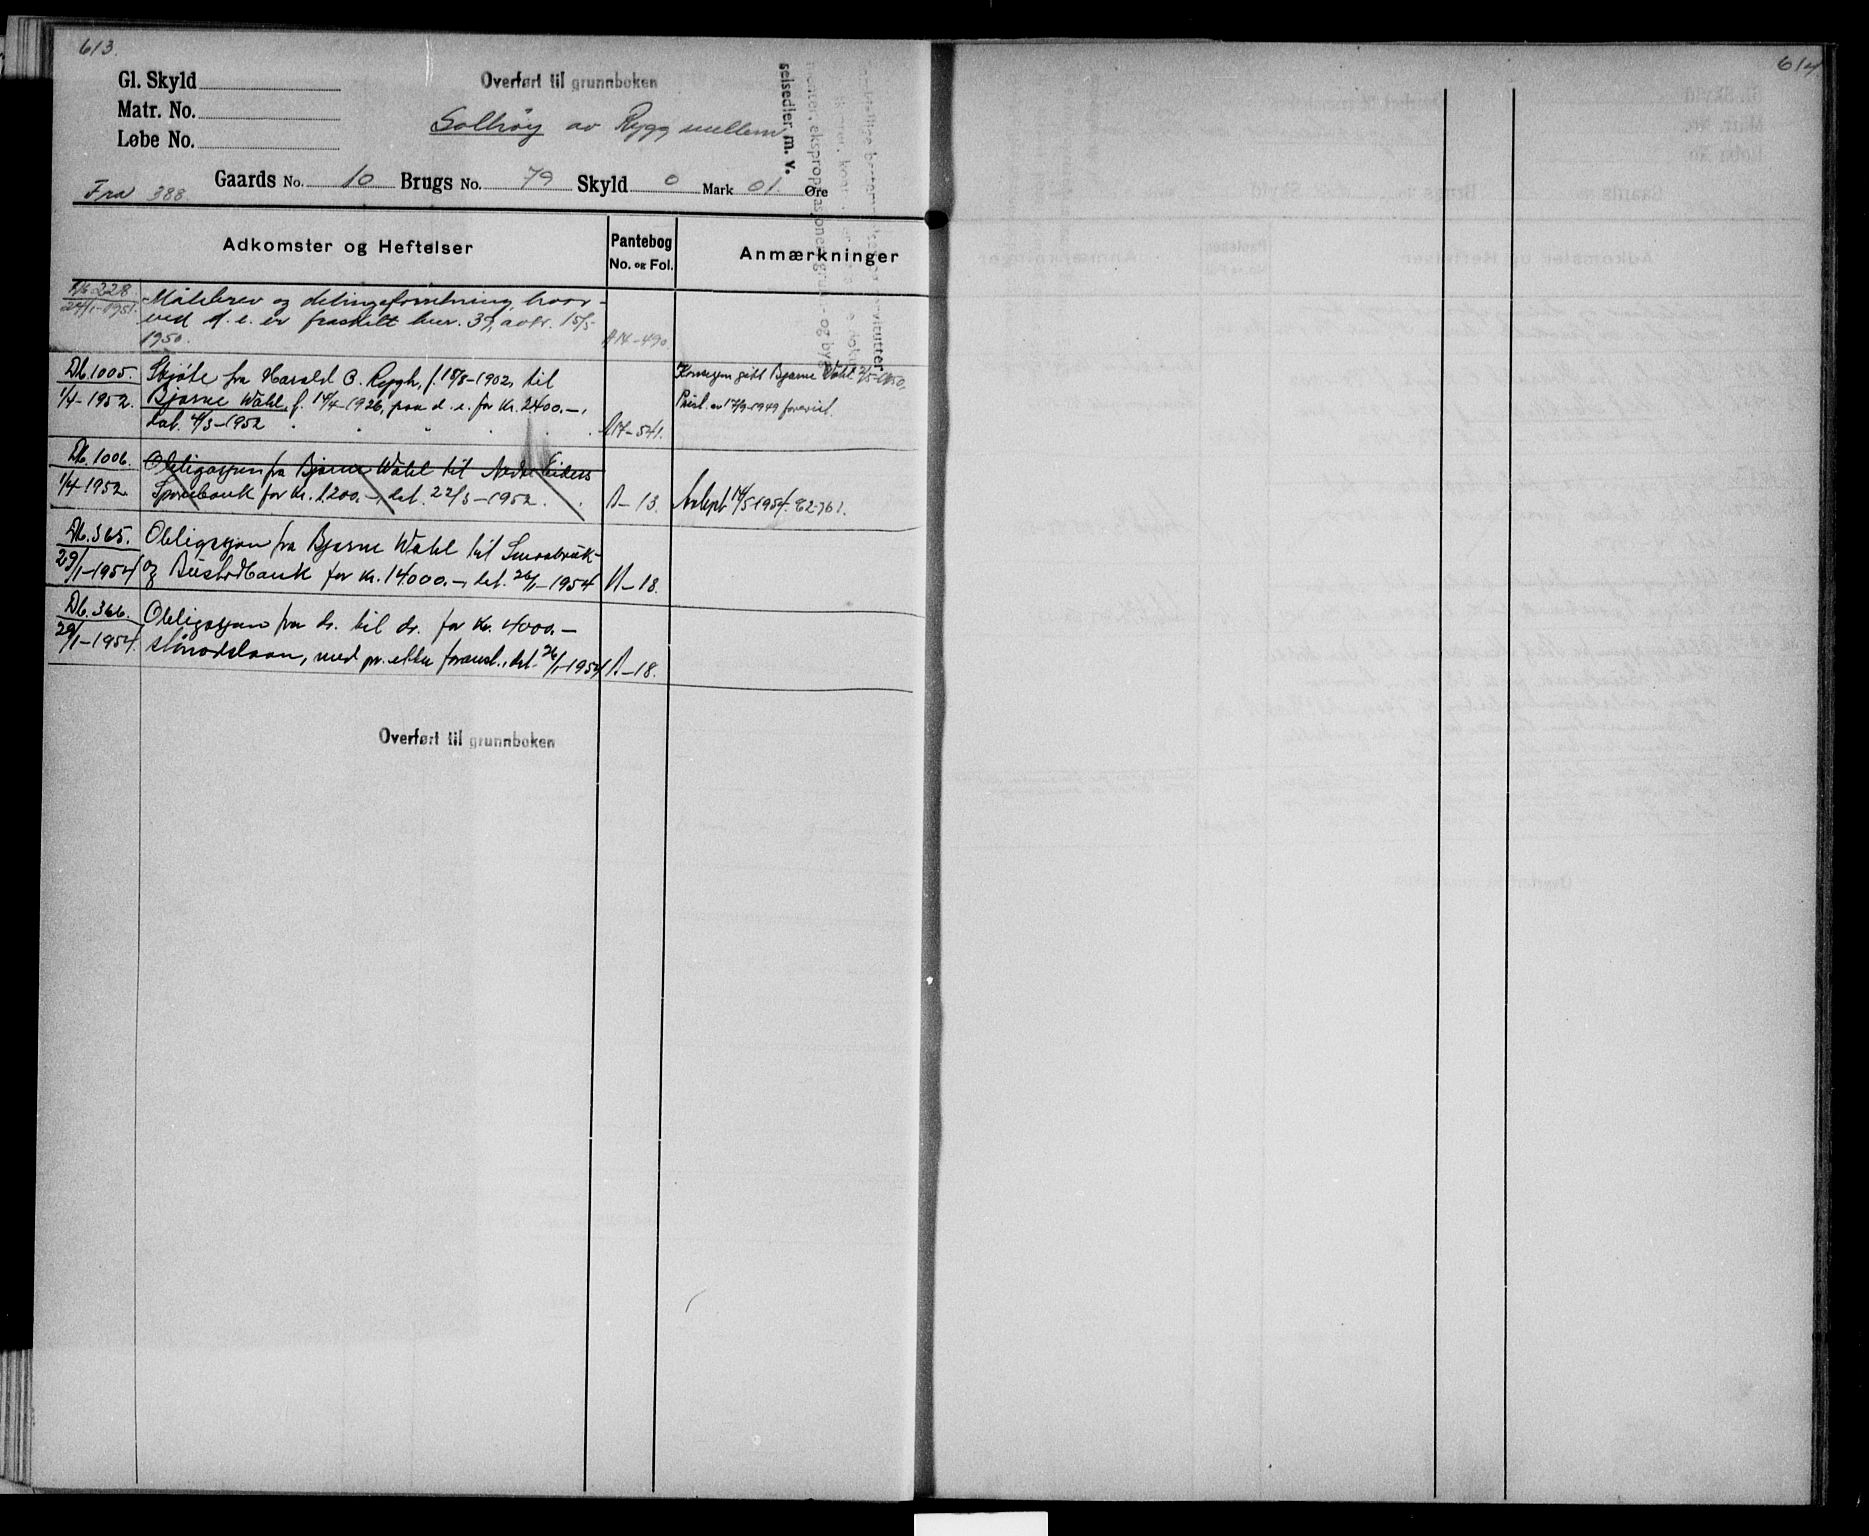 613.
614
Gl. Skyld
Overført til grunnboken
Matr. No.
Løbe No.
Solhøy av Rygg mellem
selsedler, m. v.
Gaards No. 10 Brugs No. 79 Skyld 0 Mark 01 Øre
Fra 388.
Adkomster og Heftelser
Pantebog
No. og Fol.
Anmærkninger
Db. 228.
24/1-1951.
Målebrev og delingsforretning hvor-
ved d. e. er fraskilt bnr. 39, avh. 15/5-
1950.
A14-490.
Db. 1005.
1/4-1952.
Skjøte fra Harald O. Rygh, f. 15/8-1902, til
Bjarne Wahl, f. 14/4-1926, paa d. e. for kr. 2400.-,
dat. 4/3-1952
A14-541.
Konsesjon gitt Bjarne Wahl 2/5-1950.
av 17/9-1949 forevist.
Db. 1006.
1/4-1952.
Obligasjon fra Bjarne Wahl til Nedre Eiker
Sparebank for kr. 1200.-, dat. 22/3-1952.
A-13.
Avlyst 14/5-1954.
Db. 365.
29/1-1954
Obligasjon fra Bjarne Wahl til Smaabruk-
og Bustadbank for kr. 14000.-, dat. 26/1-1954
A-18.
Db. 366.
29/1-1954.
Obligasjon fra do. til do. for kr. 4000.-
stønadslaan, med pr. etter foranst., dat. 26/1-1954
A-18.
Overført til grunnboken